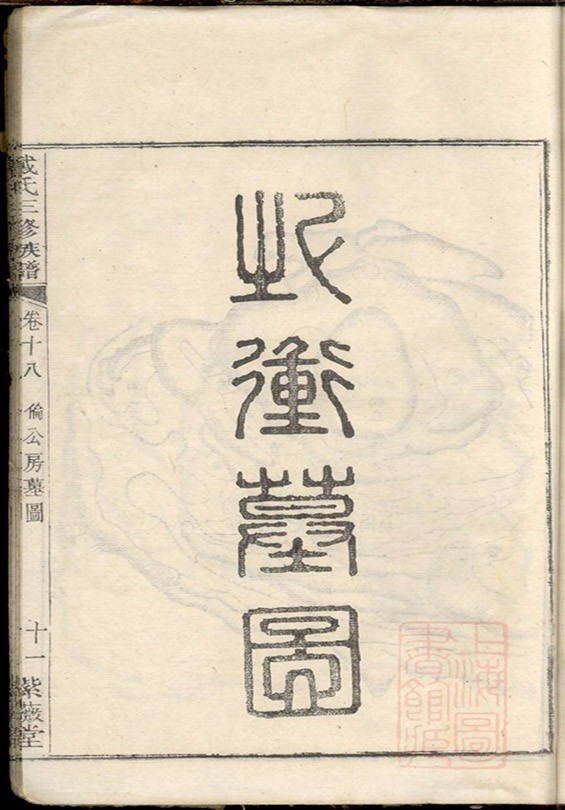 此衝墓圖
戴氏三修族譜
卷十八 倫公房墓圖
十一
紫薇堂
上海圖
書館藏